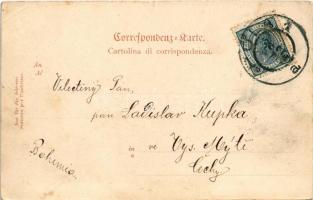 Correspondenz-Karte.
Cartolina di corrispondenza.
An
Al
Velectěný Pan,
pan Ladislav Kupka,
in
ve Vys. Mýtě
Čechy
Bohemia
Nur für die Adresse.